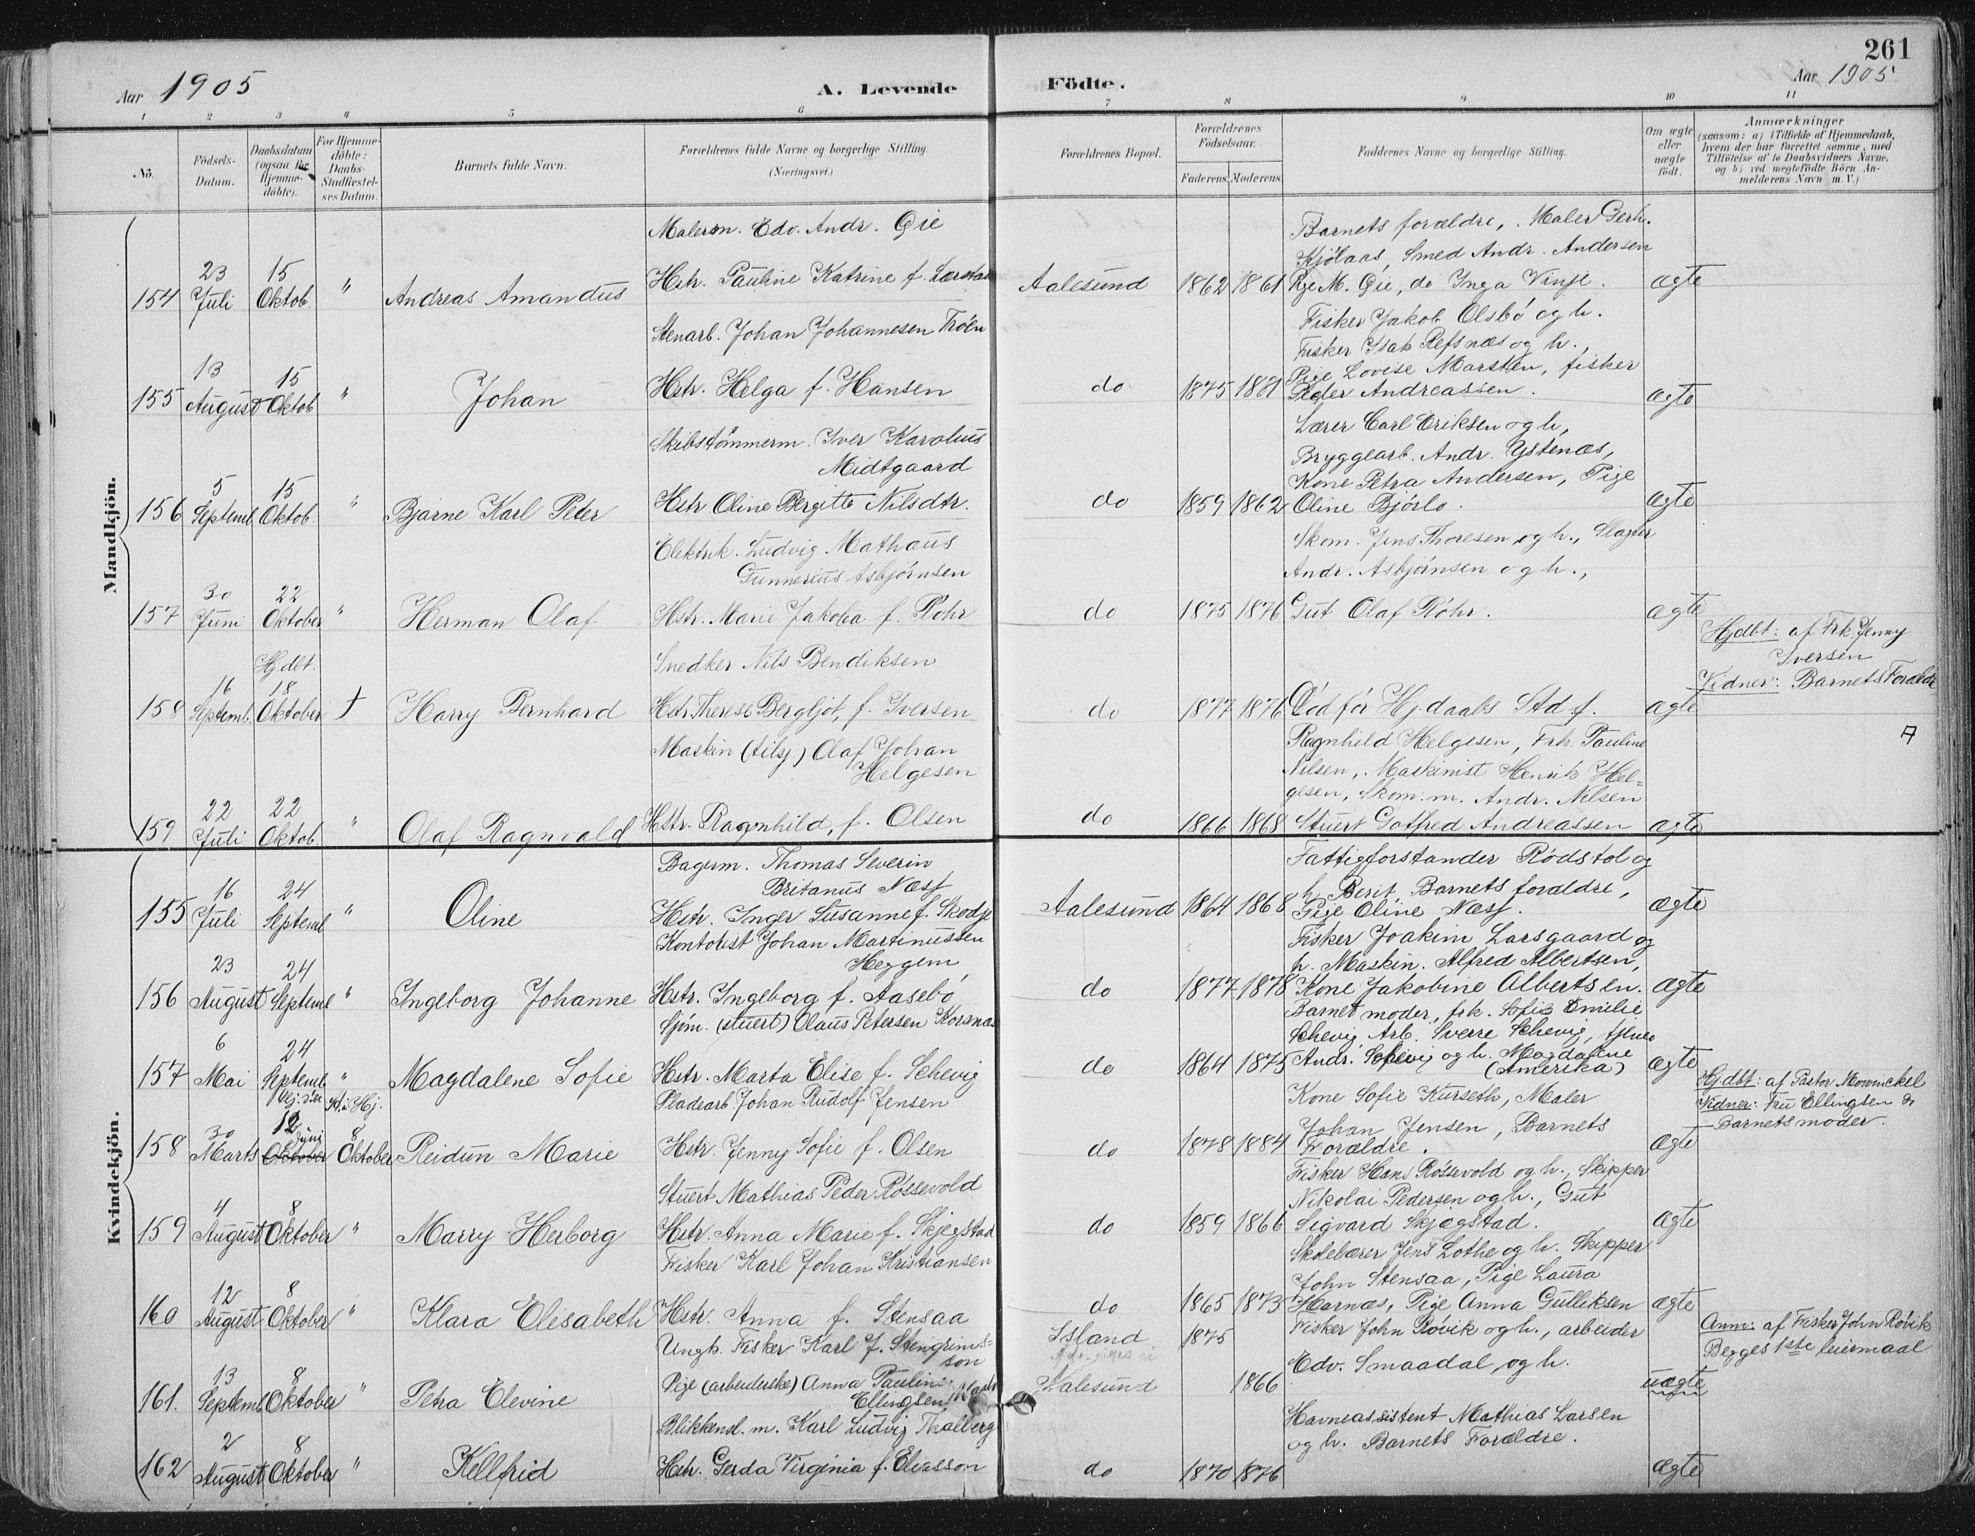 261
Aar 1905
A. Levende Födte.
Aar 1905.
1 2 3 4 5 6 7 8 9 10 11
No.
Födsels-Datum.
Daabsdatum (ogsaa for Hjemme-döbte).
For Hjemme-döbte: Daabs-Stadfæstel-ses Datum.
Barnets fulde Navn.
Forældrenes fulde Navne og borgerlige Stilling. (Næringsvei.)
Forældrenes Bopæl.
Forældrenes Födselsaar.
Faderens. Moderens.
Faddernes Navne og borgerlige Stilling.
Om ægte eller uægte födt.
Anmærkninger
(saasom: a) i Tilfælde af Hjemmedaab,
hvem der har forrettet samme, med
Tilföielse af to Daabsvidners Navne,
og b) ved uegtefödte Börn An-
melderens Navn m. V.)
Mandkjön.
154 23 Juli 15 Oktob. " Andreas Amandus
Malersv. Edv. Andr. Gie
Hstr. Pauline Katrine f.
Aalesund 1862 1861
Barnets forældre, Maler Gerh.
Kjölaas, Smed Andr. Andersen
Pige M. Gie, do Inga Vinje.
ægte
155 13 August 15 Oktob " Johan
Stenarb. Johan Johannesen Tröen
Hstr. Helga f. Hansen
do 1875 1881
Fisker Jakob Olsbö og h.
Fisker Isak Refsnæs og h.,
Pige Lovise Marsteen, fisker
Peder Andreassen.
ægte
156 5 Septemb 15 Oktob " Bjarne Karl Peter
Skibstömmerm. Iver Karolius
Midtgaard
Hstr Oline Bergitte Nilsdtr.
do 1859 1862
Lærer Carl Eriksen og h,
Bryggearb. Andr. Ystenæs,
Kone Petra Andersen, Pige
Oline Bjørlo.
ægte
157 30 Juni 22 Oktober " Herman Olaf
Elektrik. Ludvig Mathæus
Gunnerius Asbjörnsen
Hstr. Marie Jakoba f. Röhr
do 1875 1876
Skom. Jens Thoresen og h., Slagter
Andr. Asbjörnsen og h.,
Gut Olaf Röhr.
ægte
158 16 Septemb. Hj.dbt. 18 Oktober † Harry Bernhard
Snedker Nils Bendiksen
Hstr. Therese Bergljot, f. Iversen
do 1877 1876
Död før Hj.daabs Stadf.
ægte
Hjdbt: af Frk. Jenny
Iversen
Vidner: Barnets Forældre
159 22 Juli 22 Oktob. " Olaf Ragnvald
Maskin (tilsj) Olaf Johan
Helgesen
Hstr. Ragnhild, f. Olsen
do 1866 1868
Ragnhild Helgesen, Frk. Pauline
Nilsen, Maskinist Henrik Hel=
gesen, Skom.m. Andr. Nilsen
Stuert Gotfred Andreassen
ægte
Kvindekjön.
155 16 Juli 24 Septemb " Oline
Bagerm. Thomas Severin
Britanus Næss
Hstr. Inger Susanne f. Skodje
Aalesund 1864 1868
Fattigforstander Rödstol og
h. Berit Barnets forældre,
Pige Oline Næss.
ægte
156 23 August 24 Septemb " Ingeborg Johanne
Kontorist Johan Martinussen
Heggem,
Hstr. Ingeborg f. Aasebö
do 1877 1878
Fisker Joakim Larsgaard og
h. Maskin. Alfred Albertsen,
Kone Jakobine Albertsen.
ægte
157 6 Mai 24 Septemb. " Magdalene Sofie
Sjöm. (stuert) Olaus Petersen Korsnæs
Hstr. Marta Elise f. Schevig
do 1864 1875
Barnet moder, frk. Sofie Emilie
Schevig Arb. Sverre Schevig,
Andr. Schevig og h. Magdalene
(Amerika)
ægte
158 30 Marts 12 Juni 8 Oktober Reidun Marie
Pladearb Johan Rudolf Jensen
Hstr. Jenny Sofie f. Olsen
do 1878 1884
Kone Sofie Kurseth, Maler
Johan Jensen, Barnets
Forældre.
ægte
Hjdbt: af Pastor Mowinckel
Vidner: Fru Ellingsen &
Barnets moder.
159 4 August 8 Oktober " Marry Herborg
Stuert Mathias Peder Rössevold
Hstr. Anna Marie f. Skjegstad
do 1859 1866
Fisker Hans Rössevold og h., Skipper
Nikolai Pedersen og h., Gut
Sigvard Skjægstad.
ægte
160 12 August 8 Oktober " Klara Elisabeth
Fisker Karl Johan Kristiansen
Hstr. Anna f. Stensaa
do 1865 1873
Skolelærer Jens Lothe og h. Skipper
John Stensaa, Pige Laura
Hornæs, Pige Anna Gulleksen
ægte
161. 13 Septemb 8 Oktober " Petra Elevine
Ungk. Fisker Karl J. Stengrims=
son
Pige (arbeiderske) Anna Pauline
Ellingsen
Island 1875
Aalesund 1866
Fisker John Rövik og h., arbeider
Edv. Smaadal, og h.
uægte
Anm: af Fisker John Rövik
Begges 1ste leiermaal
162 2 August 8 Oktober " Kellfrid
Blikkensl. m. Karl Ludvig Thalberg
Hstr. Gerda Virginia f. Eliasson
do 1870 1876
Havneassistent Mathias Larsen
og h. Barnets Forældre.
ægte